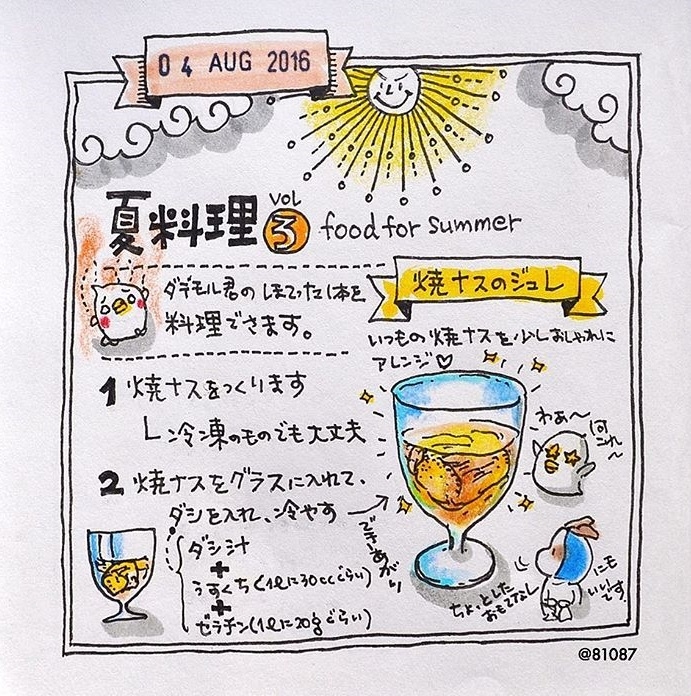 04 AUG 2016
夏料理 VOL 3 food for summer
ダデモル君のほてった体を
料理できます。
焼ナスのジュレ
いつもの焼ナスを少しおしゃれに
アレンジ♡
1 焼ナスをつくります
冷凍のものでも大丈夫
2 焼ナスをグラスに入れて、
ダシを入れ、冷やす
ダシ汁
+
うすくち(1ℓに30ccぐらい)
+
ゼラチン(1ℓに20gぐらい)
できあがり
わあ〜
何これ〜
ちょっとした
おもてなし
にも
いいです。
@81087